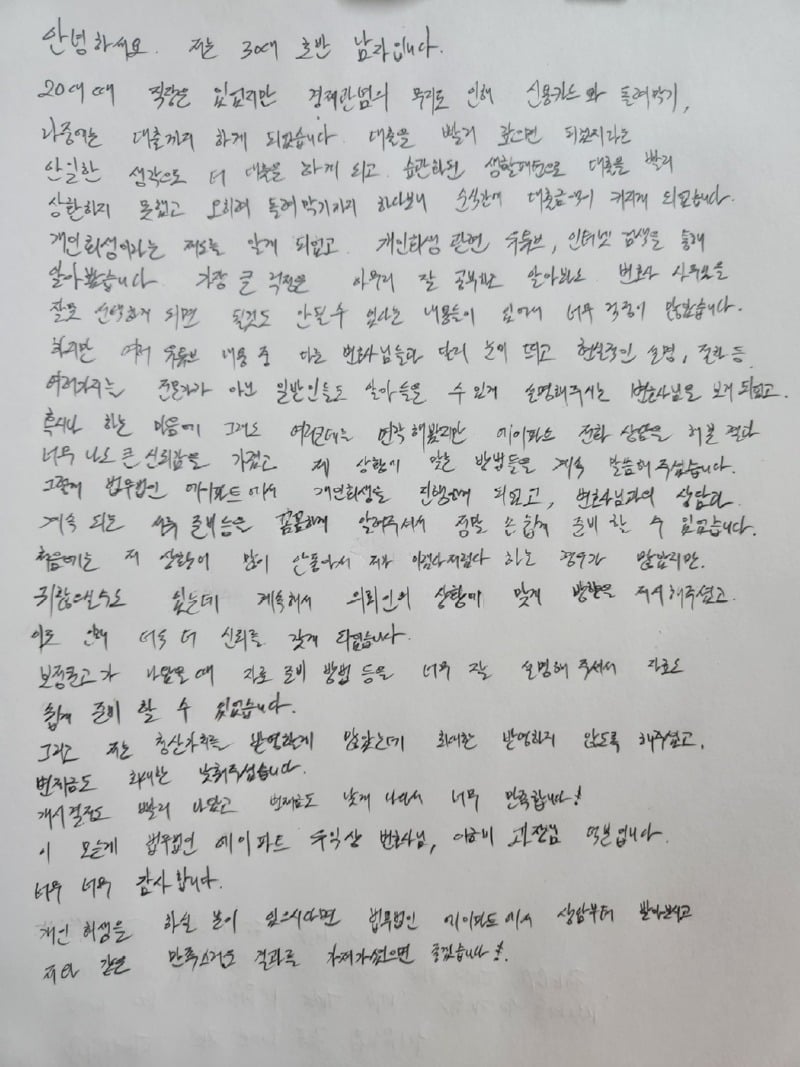 안녕하세요. 저는 30대 초반 남자입니다.
20대 때 직장은 있었지만 경제관념의 무지로 인해 신용카드와 돌려막기,
나중에는 대출까지 하게 되었습니다. 대출을 빨리 갚으면 되겠지라는
안일한 생각으로 더 대출을 하게 되고. 습관화된 생활패턴으로 대출을 빨리
상환하지 못했고 오히려 돌려막기까지 하다보니 순식간에 대출금액이 커지게 되었습니다.
개인회생이라는 제도를 알게 되었고. 개인회생 관련 유튜브, 인터넷 검색을 통해
알아봤습니다. 가장 큰 걱정은 아무리 잘 공부하고 알아봐도 변호사 사무실을
잘못 선택하게 되면 될것도 안될수 있다는 내용들이 있어서 너무 걱정이 많았습니다.
하지만 여러 유튜브 내용 중 다른 변호사님들과 달리 눈이 띄고 현실적인 설명, 절차 등
여러가지를 전문가가 아닌 일반인들도 알아들을 수 있게 설명해주시는 변호사님을 보게 되었고.
혹시나 하는 마음에 그래도 여러군데를 연락해봤지만 에이파트 전화 상담을 해본 결과
너무나도 큰 신뢰감을 가졌고 제 상황이 맞는 방법들을 계속 말씀해주셨습니다.
그렇게 법무법인 에이파트에서 개인회생을 진행하게 되었고, 변호사님과의 상담과
계속 되는 서류 준비등을 꼼꼼하게 알려주셔서 정말 손쉽게 준비 할 수 있었습니다.
처음에는 제 상황이 많이 안좋아서 제가 이랬다저랬다 하는 경우가 많았지만.
귀찮으실수도 있는데 계속해서 의뢰인의 상황에 맞게 방향을 제시해주셨고.
이로 인해 더욱 더 신뢰를 갖게 되었습니다.
보정권고가 나왔을 때 자료 준비 방법 등을 너무 잘 설명해 주셔서 자료도
쉽게 준비 할 수 있었습니다.
그리고 저는 청산가치를 반영할게 많았는데 최대한 반영하지 않도록 해주셨고,
변제금도 최대한 낮춰주셨습니다.
개시결정도 빨리 나왔고 변제금도 낮게 나와서 너무 만족합니다!
이 모든게 법무법인 에이파트 유익상 변호사님, 과장님 덕분입니다.
너무 너무 감사합니다.
개인 회생을 하실 분이 있으시다면 법무법인 에이파트에서 상담부터 받아보시고
저와 같은 만족스러운 결과를 가져가셨으면 좋겠습니다!.